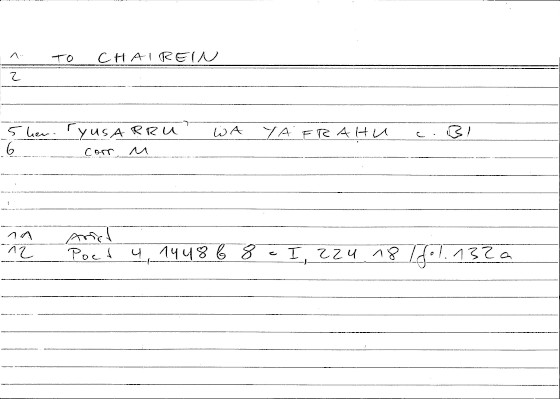 1 TO CHAIREIN
2
5 hev. ⸢YUSARRU⸣ WA YAFRAHU c. B1
6 corr M
11 Arist
12 Poet 4, 1448 b 8 = I, 224 18 / fol. 132a